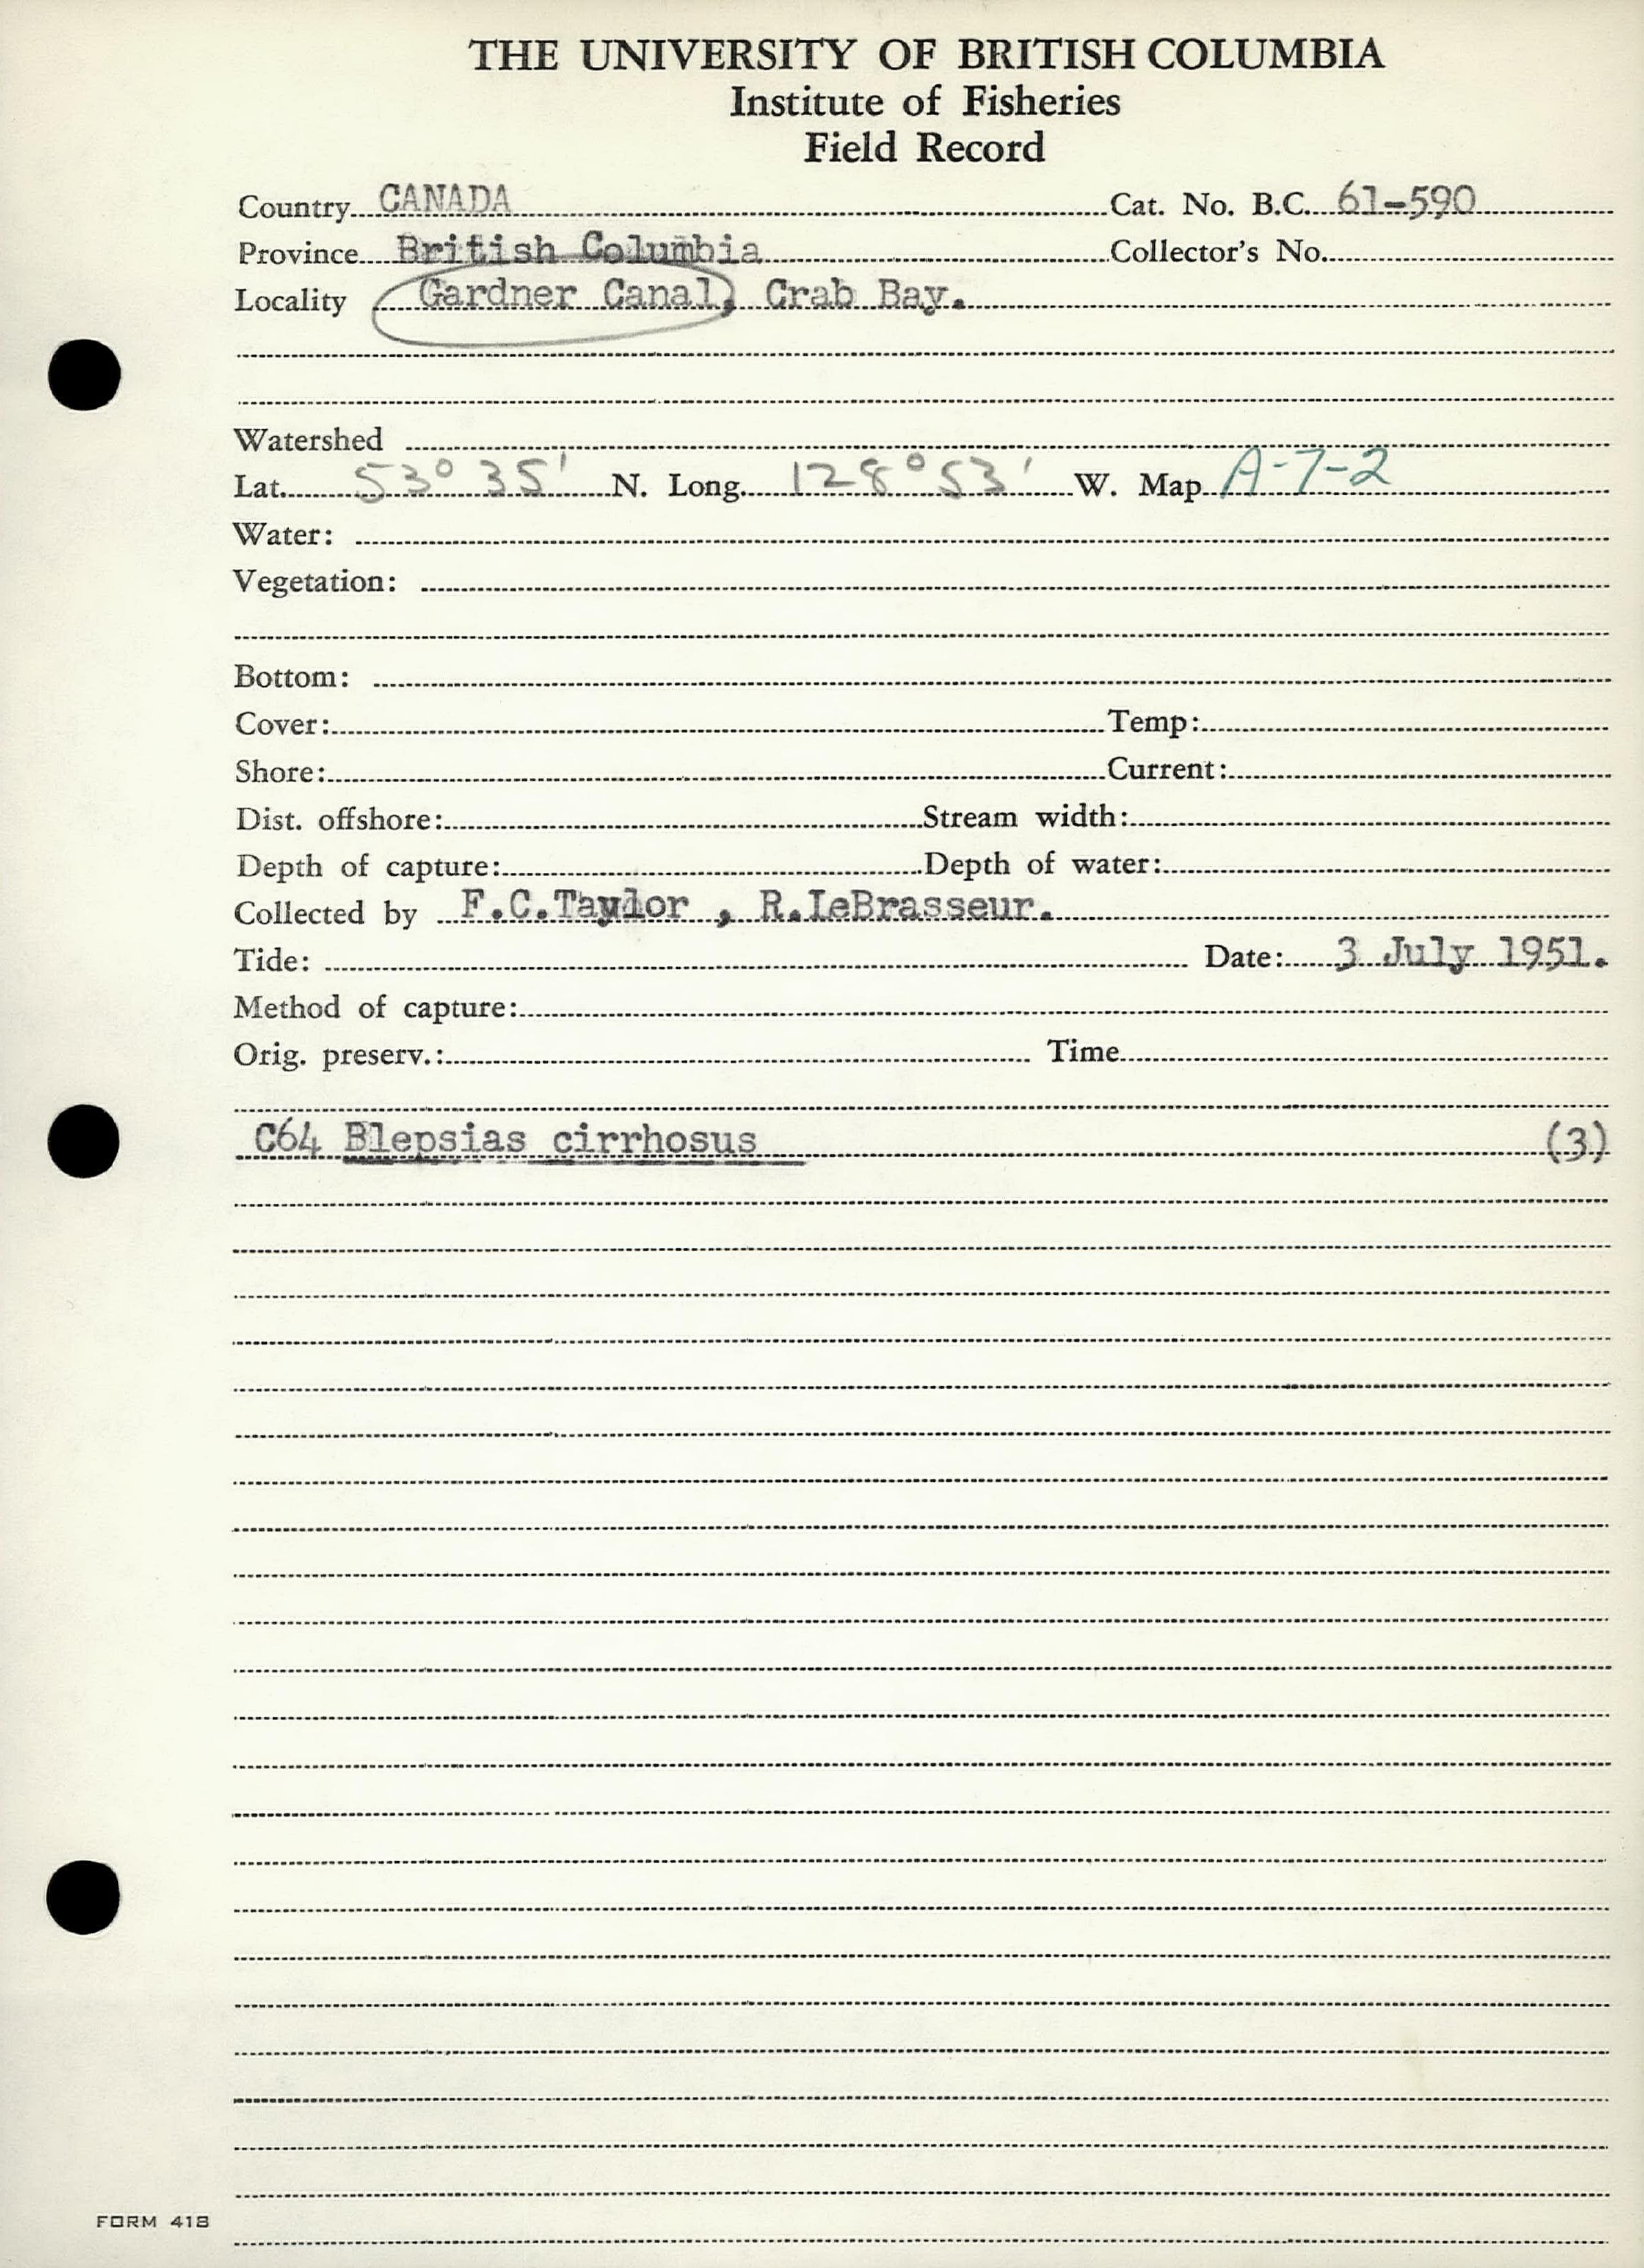 THE UNIVERSITY OF BRITISH COLUMBIA
Institute of Fisheries
Field Record
Country CANADA Cat. No. B.C. 61-590
Province British Columbia Collector's No.
Locality Gardner Canal, Crab Bay.
Watershed
Lat. 53° 35' N. Long. 128° 53' W. Map A-7-2
Water:
Vegetation:
Bottom:
Cover: Temp:
Shore: Current:
Dist. offshore: Stream width:
Depth of capture: Depth of water:
Collected by F.C.Taylor , R.LeBrasseur.
Tide: Date: 3 July 1951.
Method of capture:
Orig. preserv.: Time
C64 Blepsias cirrhosus (3)
FORM 418